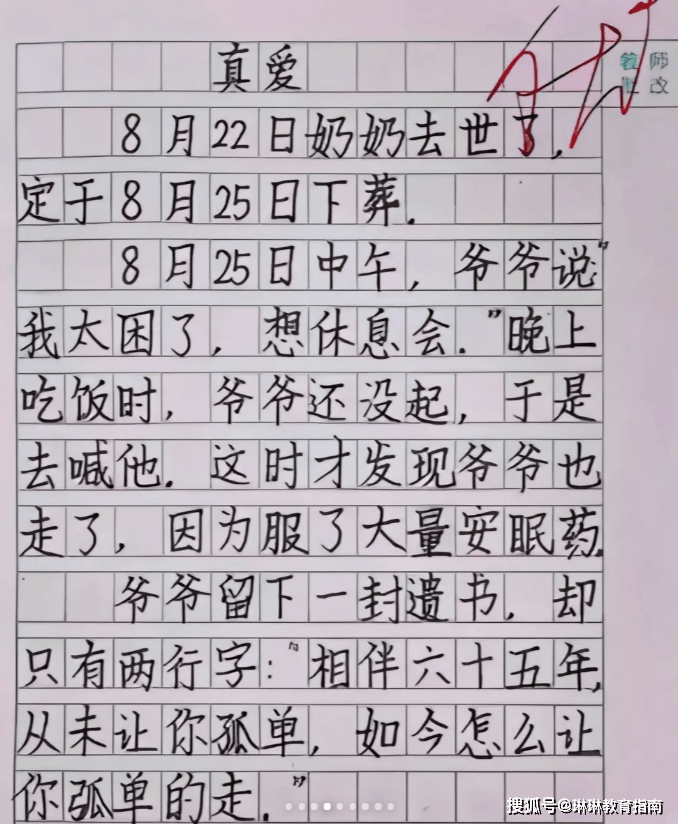 真爱
教师
批改
8月22日奶奶去世了,
定于8月25日下葬.
8月25日中午,爷爷说:"
我太困了,想休息会."晚上
吃饭时,爷爷还没起,于是
去喊他.这时才发现爷爷也
走了,因为服了大量安眠药.
爷爷留下一封遗书,却
只有两行字:"相伴六十五年,
从未让你孤单,如今怎么让
你弧单的走."
搜狐号@琳琳教育指南